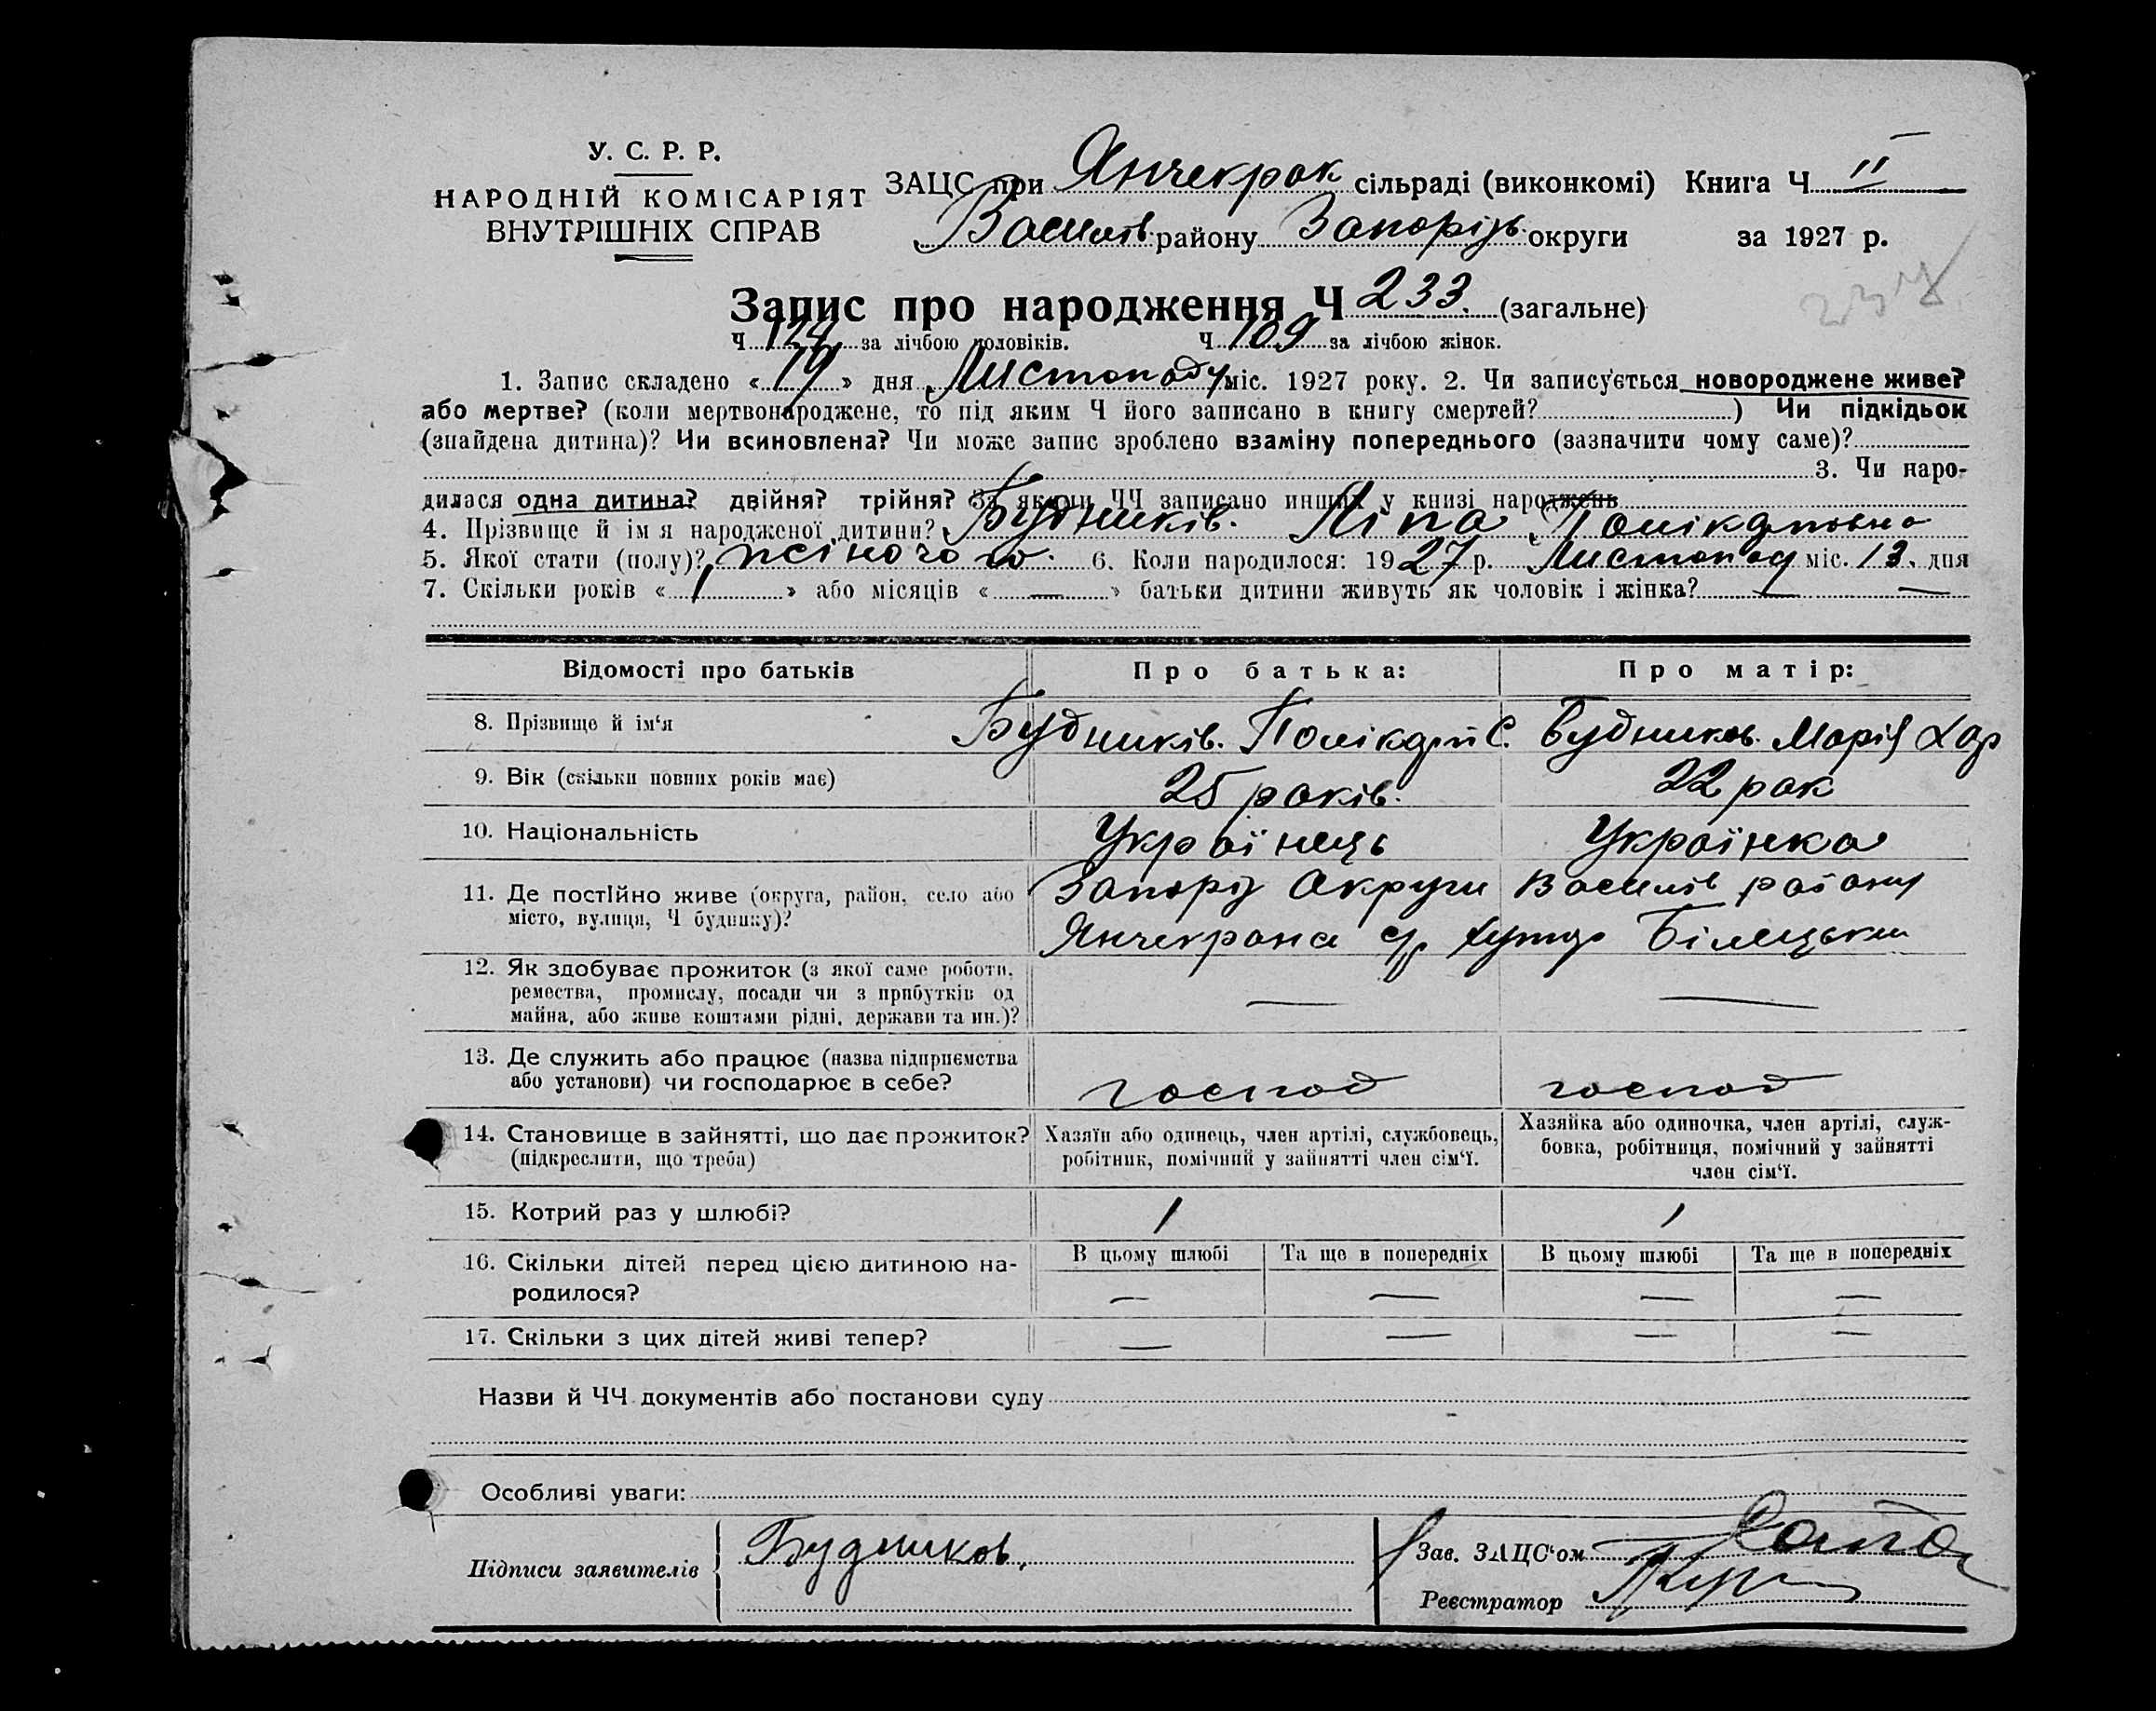 У. С. Р. Р.
НАРОДНІЙ КОМІСАРІЯТ
ВНУТРІШНІХ СПРАВ
ЗАЦС при Янчекрак сільраді (виконкомі) Книга Ч II
Василів району Запорізь округи за 1927 р.
Запис про народження Ч 233. (загальне)
Ч 124 за лічбою чоловіків. Ч 109 за лічбою жінок.
1. Запис складено « 19 » дня Листопаду міс. 1927 року. 2. Чи записується новороджене живе?
або мертве? (коли мертвонароджене, то під яким Ч його записано в книгу смертей? ) Чи підкідьок
(знайдена дитина)? Чи всиновлена? Чи може запис зроблено взаміну попереднього (зазначити чому саме)?
3. Чи наро-
дилася одна дитина? двійня? трійня? За якими ЧЧ записано инших у книзі народжень
4. Прізвище й ім я народженої дитини? Будників. Ліпа
5. Якої стати (полу)? жіночого. 6. Коли народилося: 1927 р. Листопад міс. 13. дня
7. Скільки років « 1 » або місяців « — » батьки дитини живуть як чоловік і жінка? —
Відомості про батьків
Про батька:
Про матір:
8. Прізвище й ім'я Будників. С. Будников. Марія Хар
9. Вік (скільки повних років має) 25 років. 22 рок
10. Національність Українець Українка
11. Де постійно живе (округа, район, село або Запоріз Округи Василів району
місто, вулиця, Ч будинку)? с/р хутір Білецьки
12. Як здобуває прожиток (з якої саме роботи, — —
ремества, промислу, посади чи з прибутків од
майна, або живе коштами рідні, держави та ин.)?
13. Де служить або працює (назва підприємства
або установи) чи господарює в себе? господ господ
14. Становище в зайнятті, що дає прожиток? Хазяїн або одинець, член артілі, службовець, Хазяйка або одиночка, член артілі, служ-
(підкреслити, що треба) робітник, помічний у зайнятті член сім'ї. бовка, робітниця, помічний у зайнятті
член сім'ї.
15. Котрий раз у шлюбі? 1 1
16. Скільки дітей перед цією дитиною на- В цьому шлюбі Та ще в попередніх В цьому шлюбі Та ще в попередніх
родилося? — — — —
17. Скільки з цих дітей живі тепер? — — — —
Назви й ЧЧ документів або постанови суду
Особливі уваги:
Підписи заявителів Будников.
Зав. ЗАЦС'ом
Реєстратор